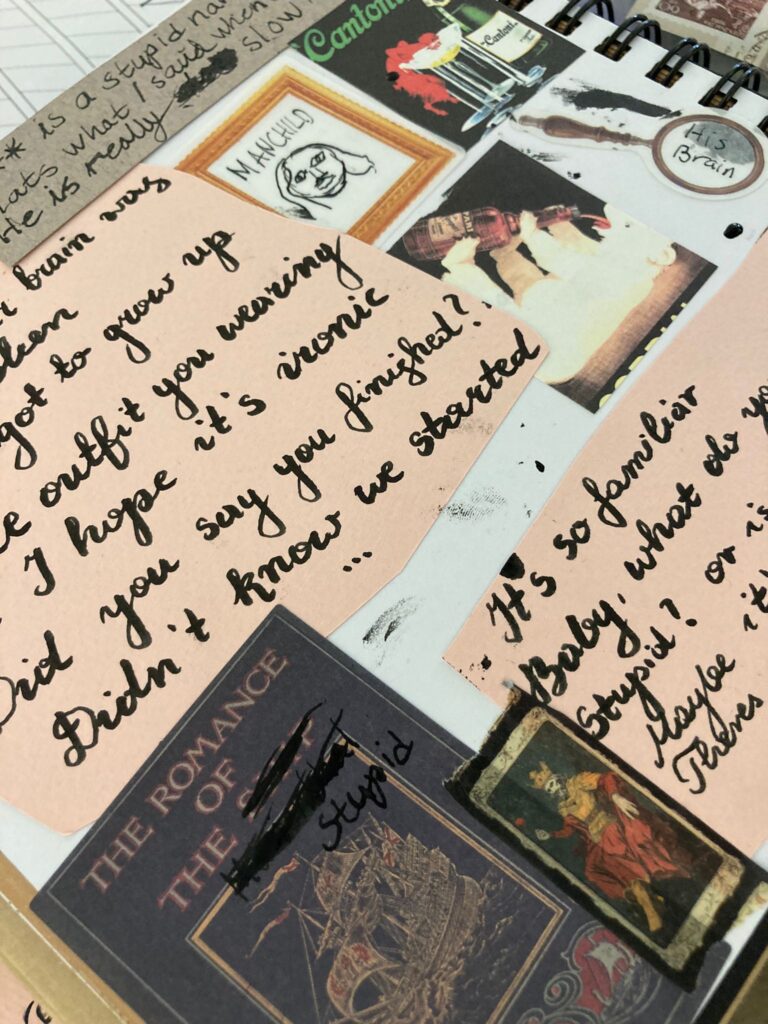 is a stupid
what I said when
He is really slow
Cantoni
Cantoni
MANCHILD
His
Brain
brain was
got to grow up
outfit you wearing
I hope it's ironic
Did you say you finished?
Didn't know we started
...
It's so familiar
Baby, what do
Stupid? or is
Maybe
Theres
THE ROMANCE
OF
THE
Stupid